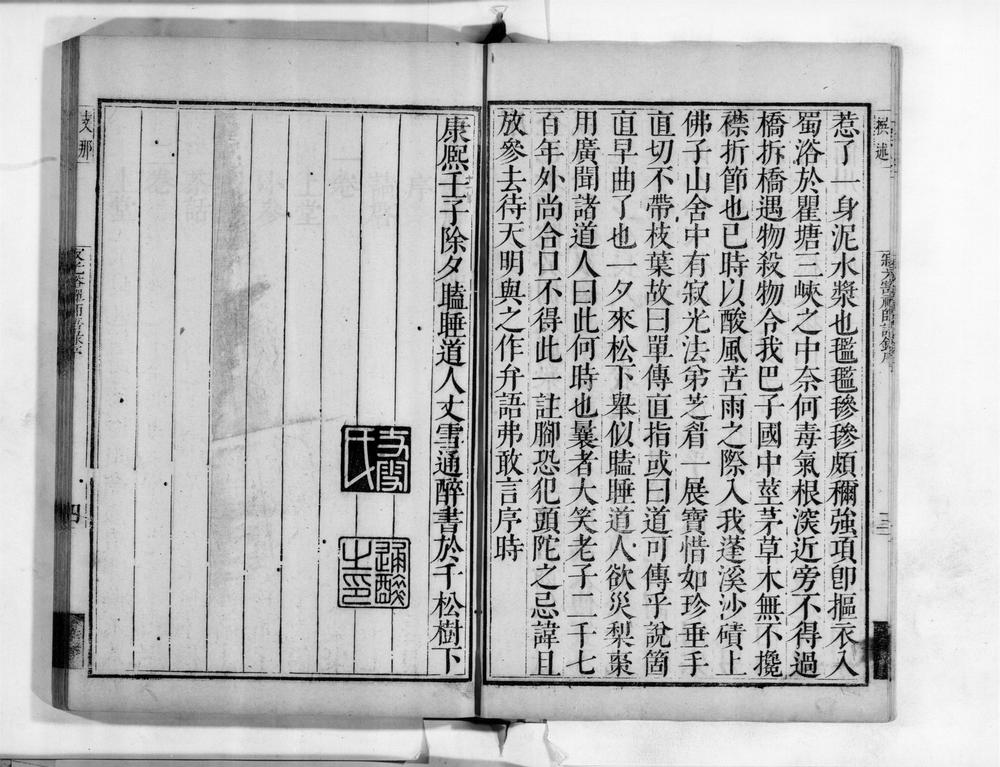 惹了一身泥水漿也毿毿毶毶頗穪強項卽摳衣入
蜀浴於瞿塘三峽之中奈何毒氣根深近旁不得過
橋拆橋遇物殺物合我巴子國中莖茅草木無不攙
襟折節也巳時以酸風苦雨之際入我蓬溪沙磧上
佛子山舍中有寂光法弟芝眉一展寶惜如珍垂手
直切不帶枝葉故曰單傳直指或曰道可傳乎說箇
直早曲了也一夕來松下舉似瞌睡道人欲災梨棗
用廣聞諸道人曰此何時也曩者大笑老子二千七
百年外尚合口不得此一註腳恐犯頭陀之忌諱且
放參去待天明與之作弁語弗敢言序時
康熈壬子除夕瞌睡道人丈雪通醉書於千松樹下
通醉之印
支那
四
三